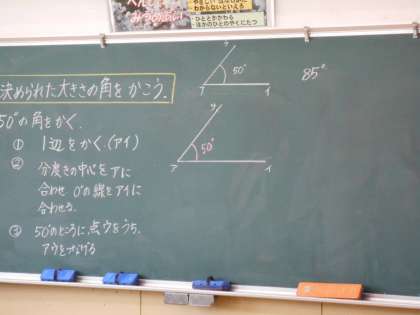 決められた大きさの角をかこう.
50°の角をかく.
① 1辺をかく.(アイ)
② 分度きの中心をアに
合わせ 0°の線をアイに
合わせる.
③ 50°のところに点ウをうち、
アウをつなげる
ウ
50°
ア
イ
ウ
50°
ア
イ
85°
ひととかかわる